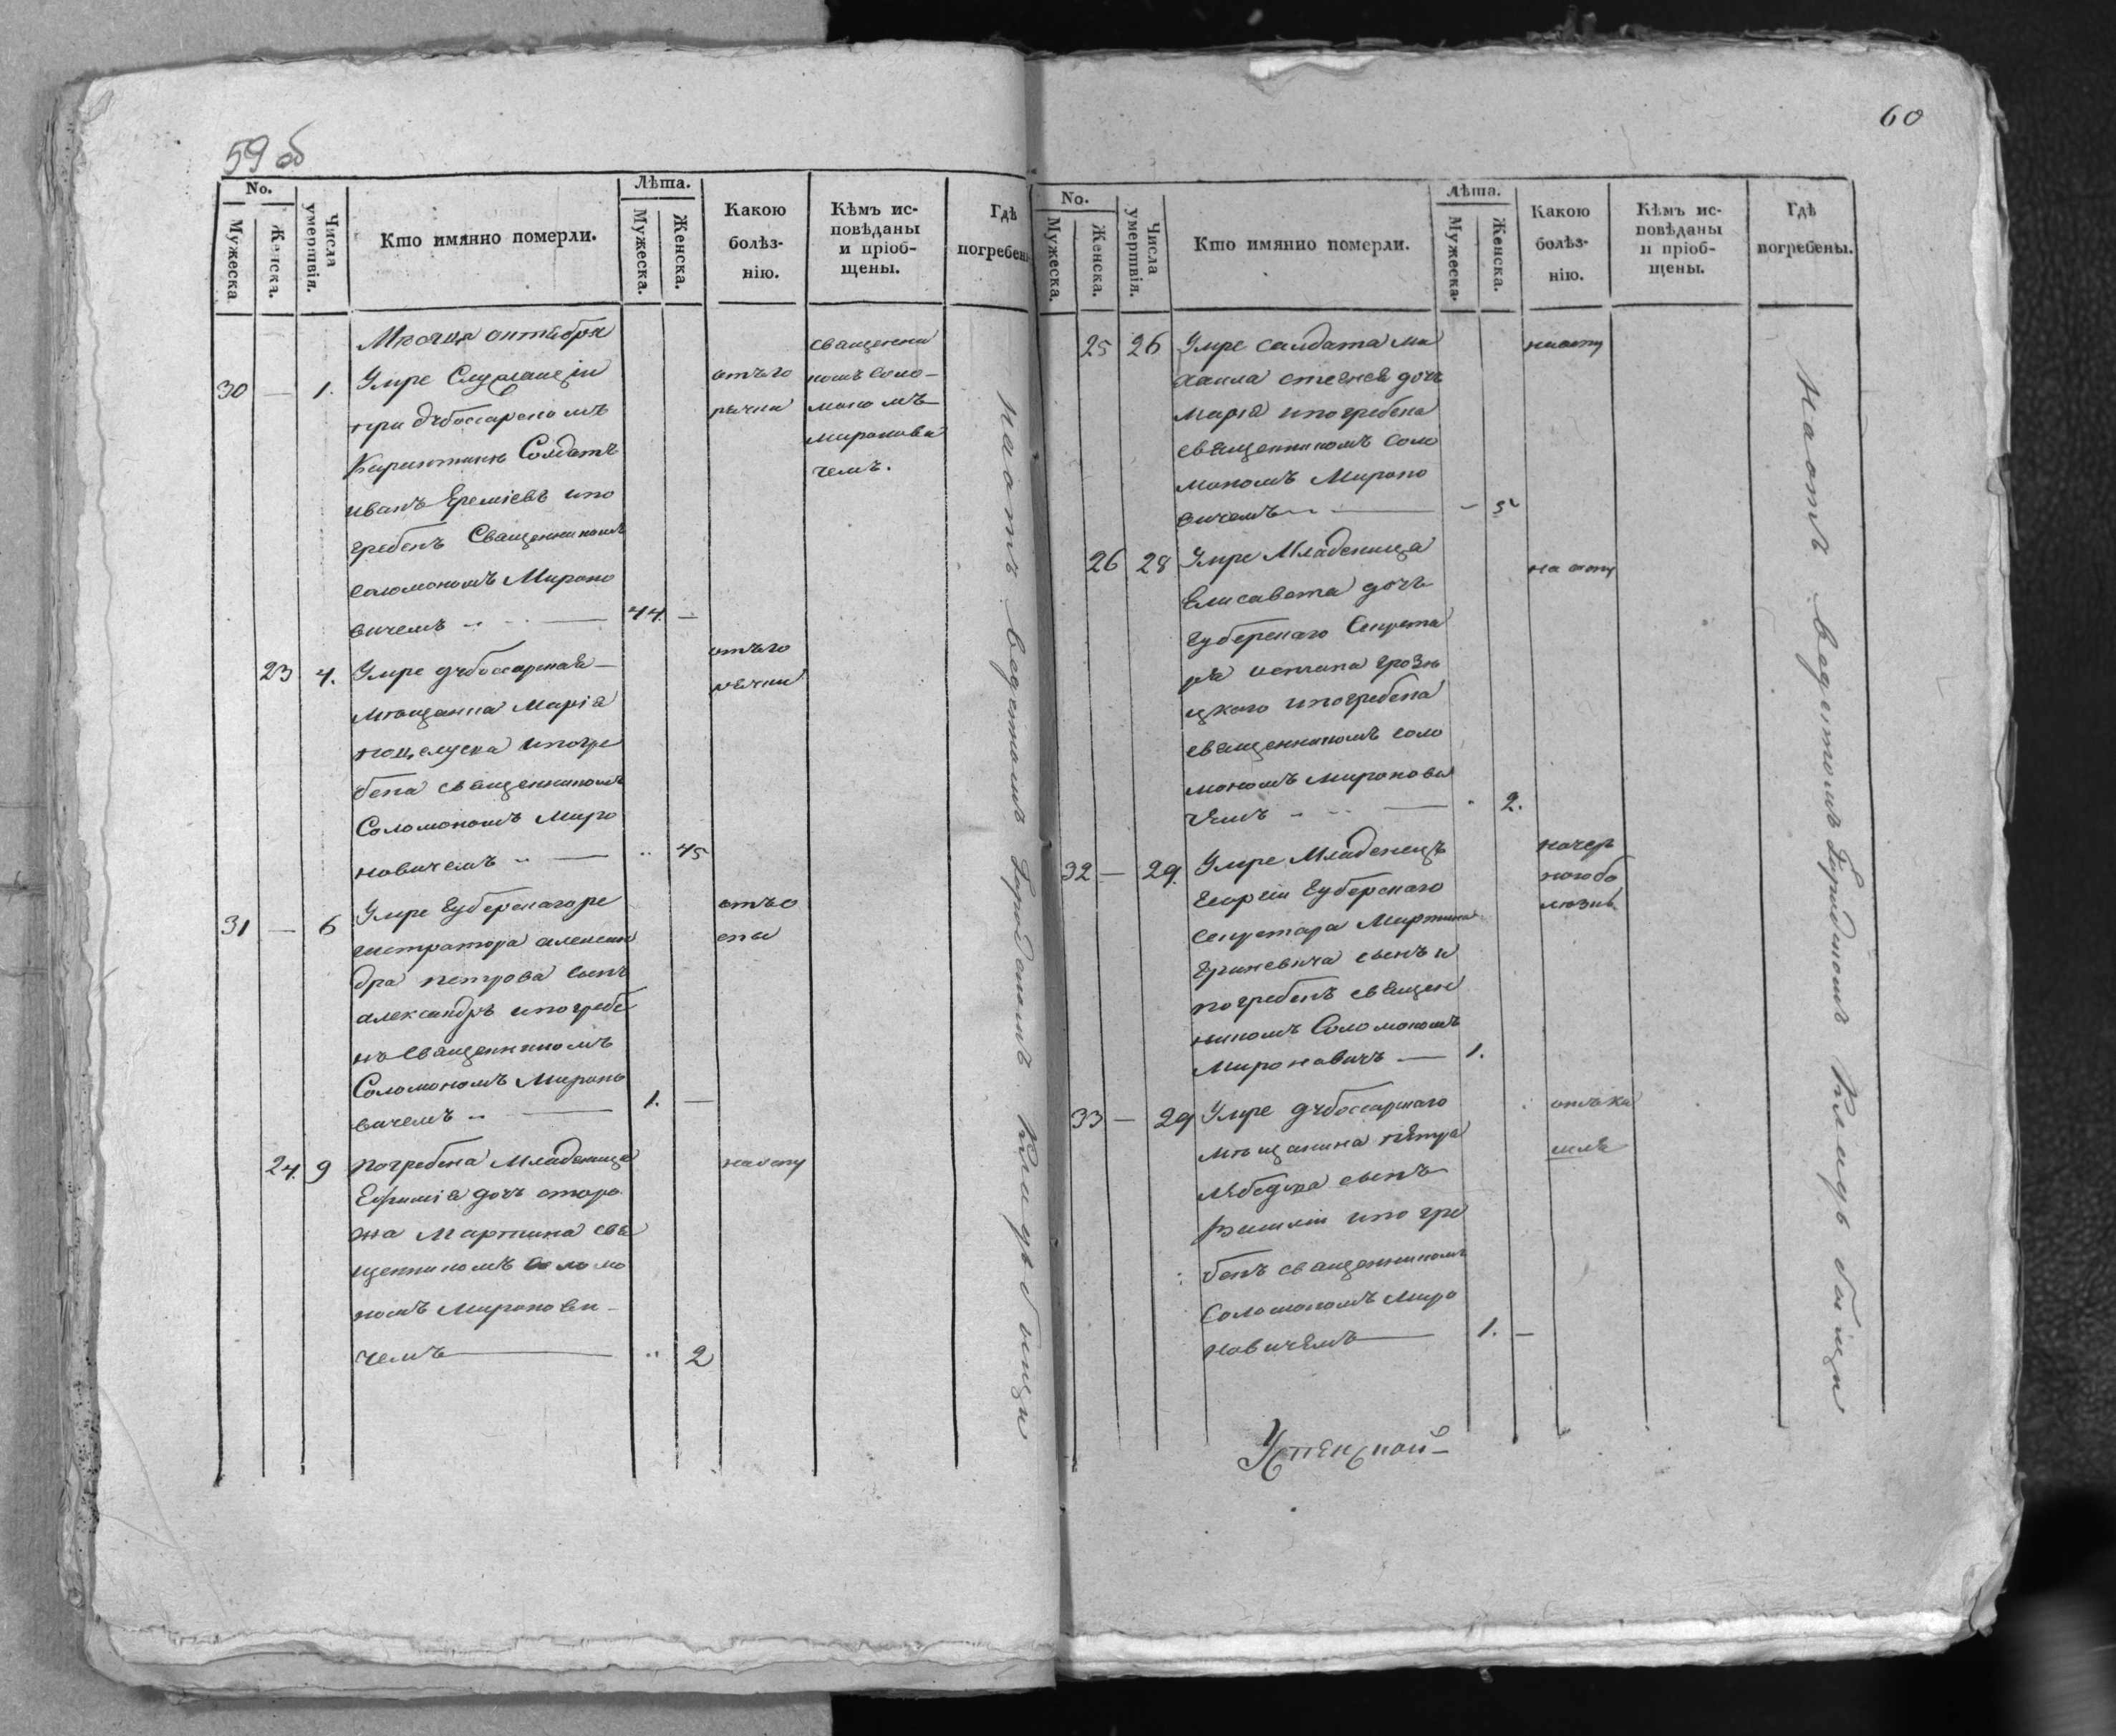 59 об
No.
Мужеска
Женска.
Числа умертвія.
Кто имянно померли.
Лѣта.
Мужеска.
Женска.
Какою болѣз-
нію.
Кѣмъ ис-
повѣданы
и пріоб-
щены.
Гдѣ
погребен
Месяца октября
30 — 1. Умре Служащій
при дубоссарскомъ
Карантине Солдатъ
иванъ Еремѣевъ ипо
гребенъ Священникомъ
соломономъ Мироно
вичемъ 44. —
отъго
рячки
священни
комъ Соло-
мономъ
миронови
чемъ.
23 4. Умре дубоссарская
мѣщанка Марія
ипогре
бена священникомъ
Соломономъ Миро
новичемъ 45
отъго
рячки
31 — 6 Умре Губерскаго ре
гистратора алексан
дра петрова сынъ
александръ ипогребе
нъ Священникомъ
Соломономъ Мироно
вичемъ 1. —
отъо
спы
24. 9 погребена Младеница
Ефимія дочь сторо
жа Мартина свя
щенникомъ Соломо
номъ Миронови-
чемъ 2
наоспу
наотъ веденномъ Городскомъ Кладбищи
60
No.
Мужеска.
Женска.
Числа умертвія.
Кто имянно померли.
Лѣта.
Мужеска.
Женска.
Какою
болѣз-
нію.
Кѣмъ ис-
повѣданы
и пріоб-
щены.
Гдѣ
погребены.
25 26 Умре салдата ми
хаила дочь
марія ипогребена
священникомъ Соло
мономъ Мироно
вичемъ — 5
наоспу
26 28 Умре Младеница
Елисавета дочь
Губерскаго Секрета
ря
цкого ипогребена
священникомъ соло
мономъ миронови
чемъ 2.
на оспу
32 — 29. Умре Младенецъ
Георгій Губерскаго
секретара Мартина
Гриневича сынъ и
погребенъ священ
никомъ Соломономъ
Мироновичъ — 1.
начер
ною бо
лезнь
33 — 29 Умре дубоссарскаго
мѣщанина петра
лебедера сынъ
Василій ипогре
бенъ священникомъ
Соломономъ Миро
новичемъ 1. —
отъка
шля
наотъ веденномъ Городскомъ Кладбищи
Успенской